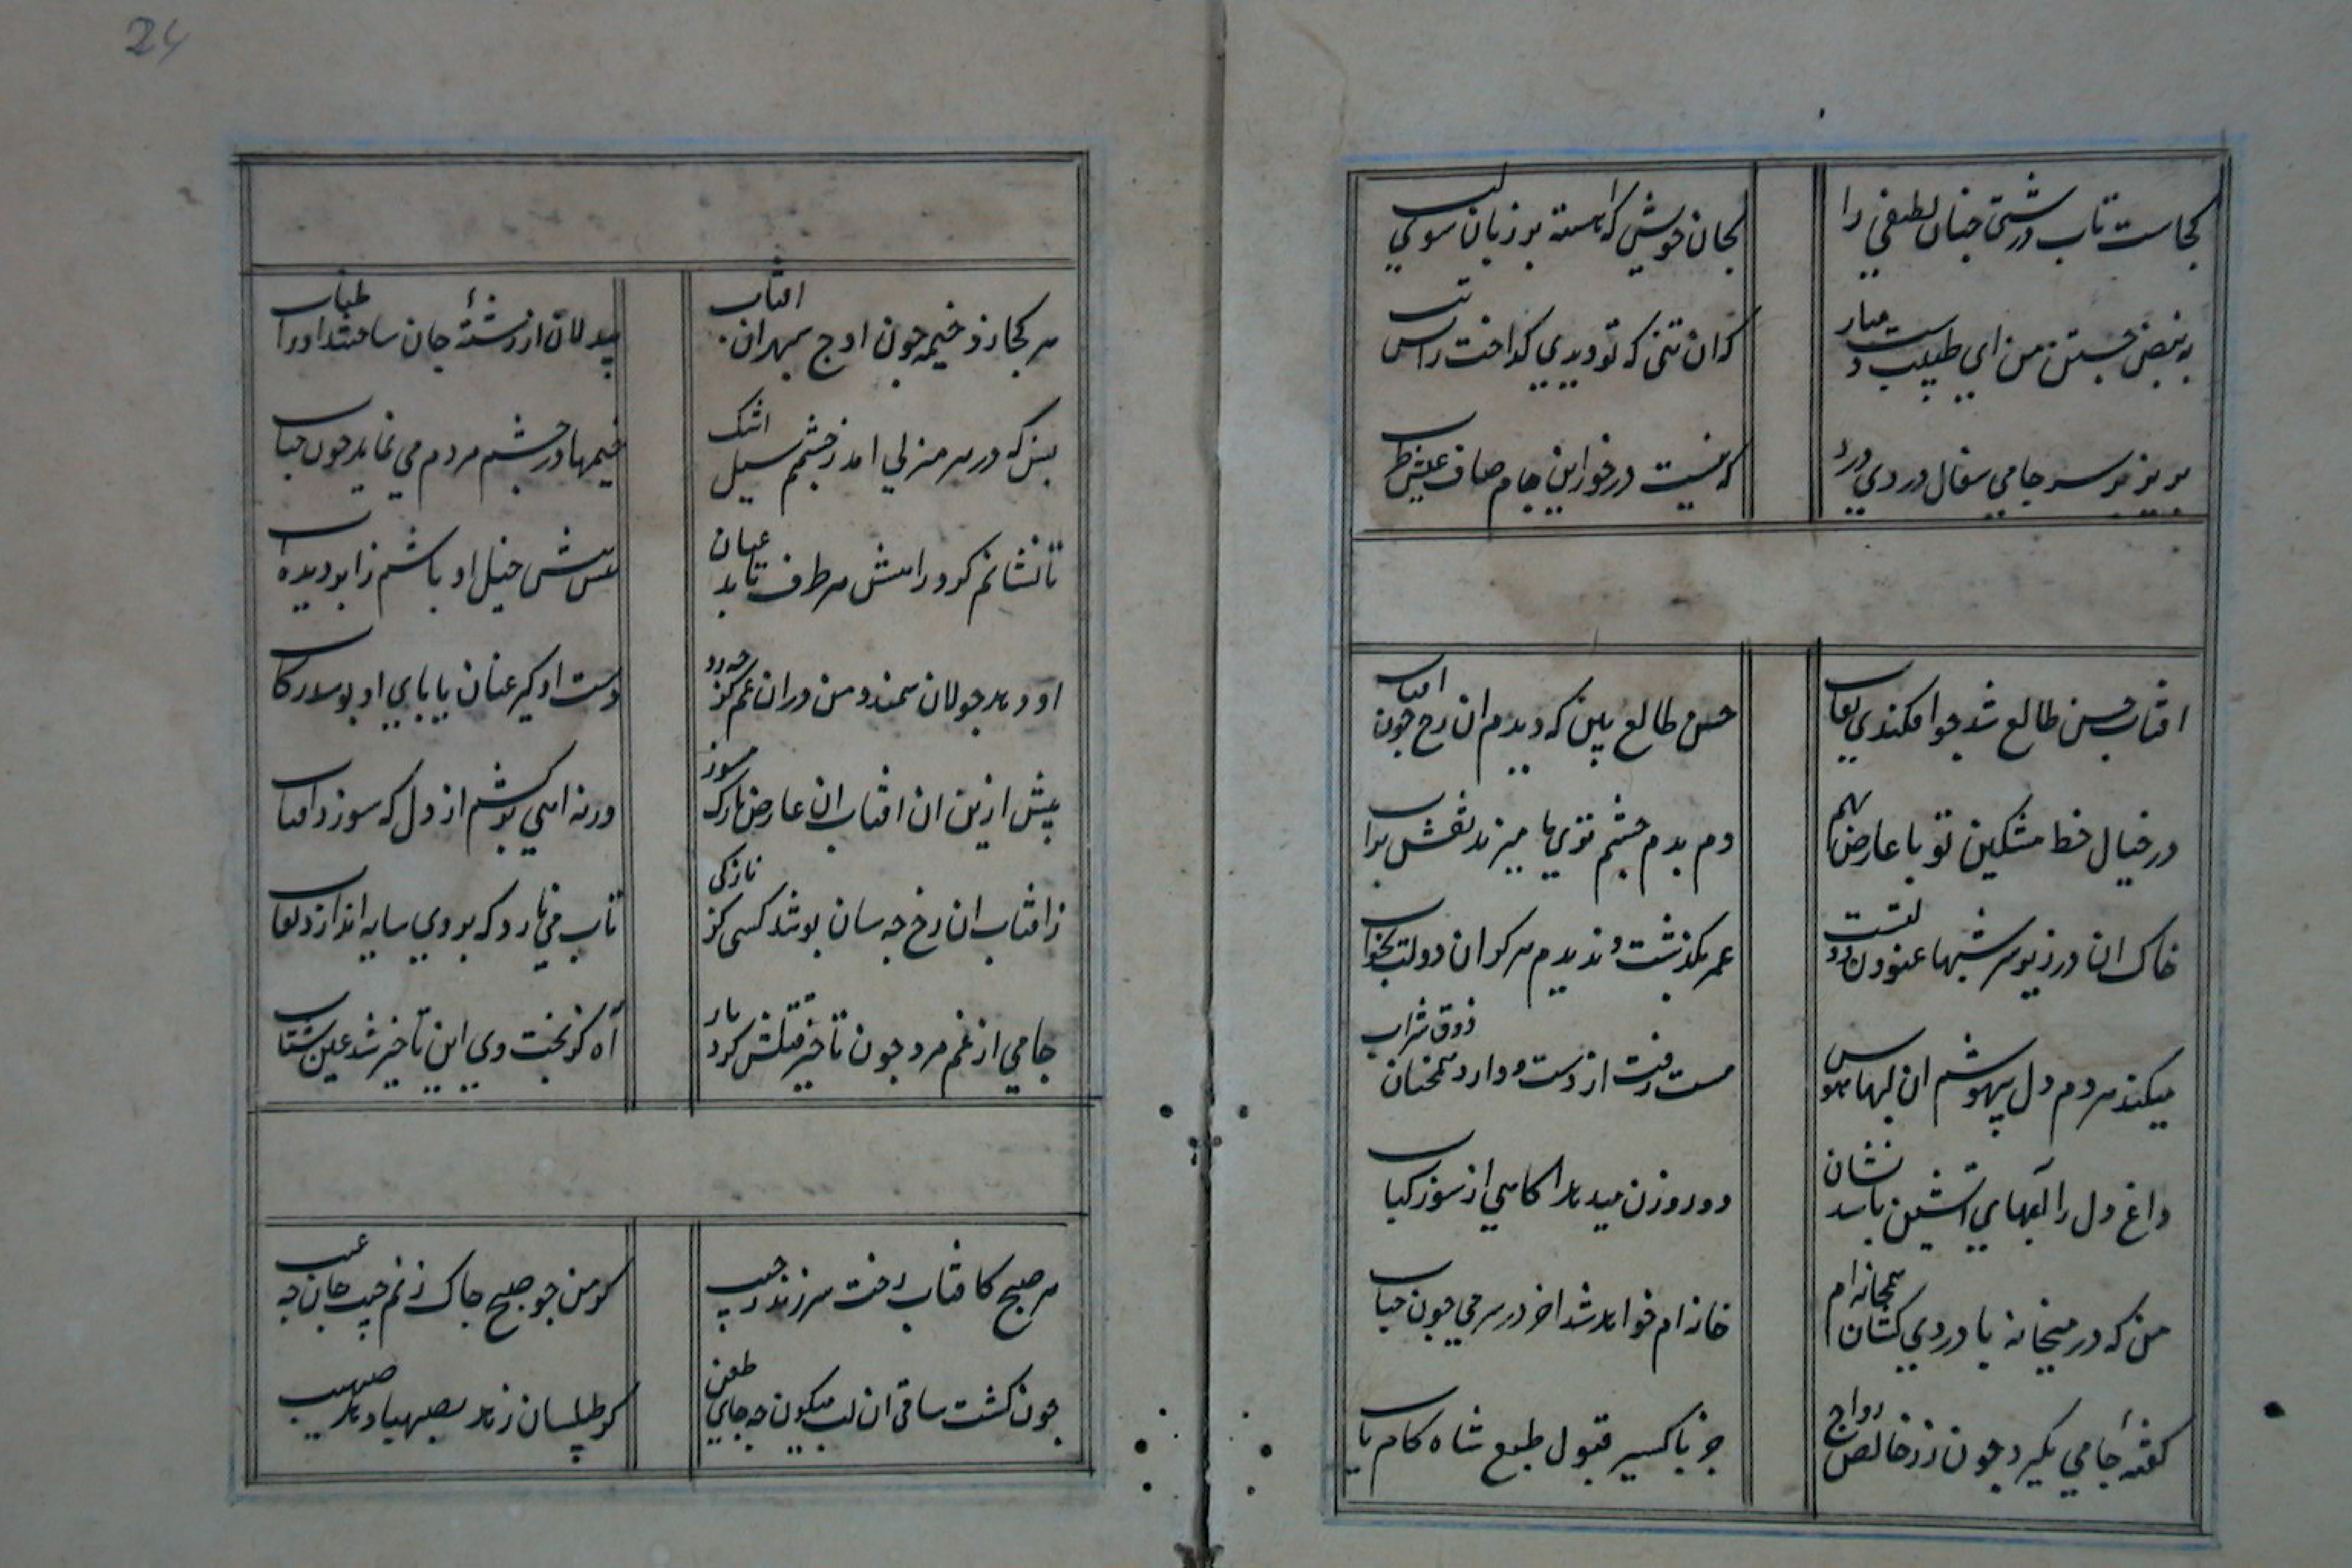 کجاست تاب درشتی چنان لطیفی را
بجان خویش که آهسته بر زبان سوی لب
به نبض جستن من ای طبیب دست میار
که ان تنی که تو دیدی گداخت راس تب
بریز بر سر جامی سفال دردی درد
که نیست درخور این جام صاف عیش
افتاب حسن طالع شد چو افکندی نقاب
حسن طالع بین که دیدم ان رخ چون افتاب
در خیال خط مشکین تو با عارض بهم
دم بدم چشم تری ما میزند نقش بر اب
خاک ان در زیر سر شبها غنودن دولتست
عمر بگذشت و ندیدم هرگز ان دولت بخواب
میکند هر دم دل بیهوشم ان لبها هوس
مست رفت از دست و دارد همچنان ذوق شراب
داغ دل را آههای آتشین باشد نشان
دود روزن میدهد اکاهی از سوز کباب
من که در میخانه با دردی کشان همخانه ام
خانه ام خواهد شد اخر در سر می چون حباب
گفتهٔ جامی بگیرد چون زر خالص رواج
جز باکسیر قبول طبع شاه کامیاب
24
هر کجا زد خیمه چون اوج بهر ان افتاب
بیدلان از رشتهٔ جان ساختند او را طناب
بس که در هر منزلی امد ز چشمم سیل اشک
خیمها در چشم مردم می نماید چون حباب
تا نشانم گرد راهش هر طرف تابد عنان
پیش پیش خیل او باشم ز ابر دیده اب
او دهد جولان سمند و من در ان غم کز چه رو
دست او گیرد عنان یا پای او بوسد رکاب
پیش ازین ان افتاب ان عارض نازک مسوز
ورنه اهی برکشم از دل که سوزد افتاب
ز افتاب ان رخ چه سان پوشد کسی کز نازکی
تاب می نارد که بر وی سایه اندازد نقاب
جامی از غم مرد چون تاخیر قتلش کرد یار
آه کز بخت وی این تاخیر شد عین شتاب
هر صبح کافتاب رخت سر زند ز جیب
گر من چو صبح چاک زنم جیب جان چه عیب
چون گشت ساقی ان لب میگون چه جای طعن
گر طیلسان زهد بصهبا دهد صهیب